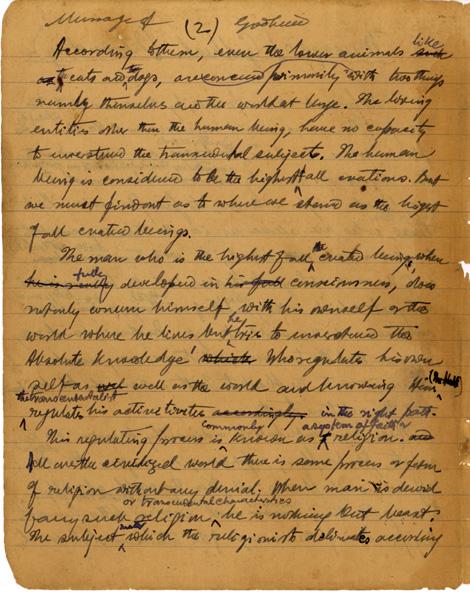 Message of (2) Godhead
According to them, even the lower animals like
cats and the dogs, are concerned primarily with two things
namely themselves and the world at large. The living
entities other then the human being, have no capacity
to understand the transcendental subjects. The human
being is considered to be the highest of all creations. But
we must find out as to where we stand as the highest
of all created beings.
The man who is the highest of all the created beings, when
he is fully developed in his full consciousness, does
not only concern himself with his own self or the
world where he lives but he tries to understand the
Absolute Knowledge' which Who regulates his own
self as well as the world and knowing Him
the transcendentalist
regulate his activities accordingly. in the right path.
commonly a system of faith or
This regulating process is known as religion. and
All over the civilized world there is some process or form
of religion without any denial. When man is devoid
or transcendental characteristics
of any such religion, he is nothing but beast.
The subject which the religionists delineates according